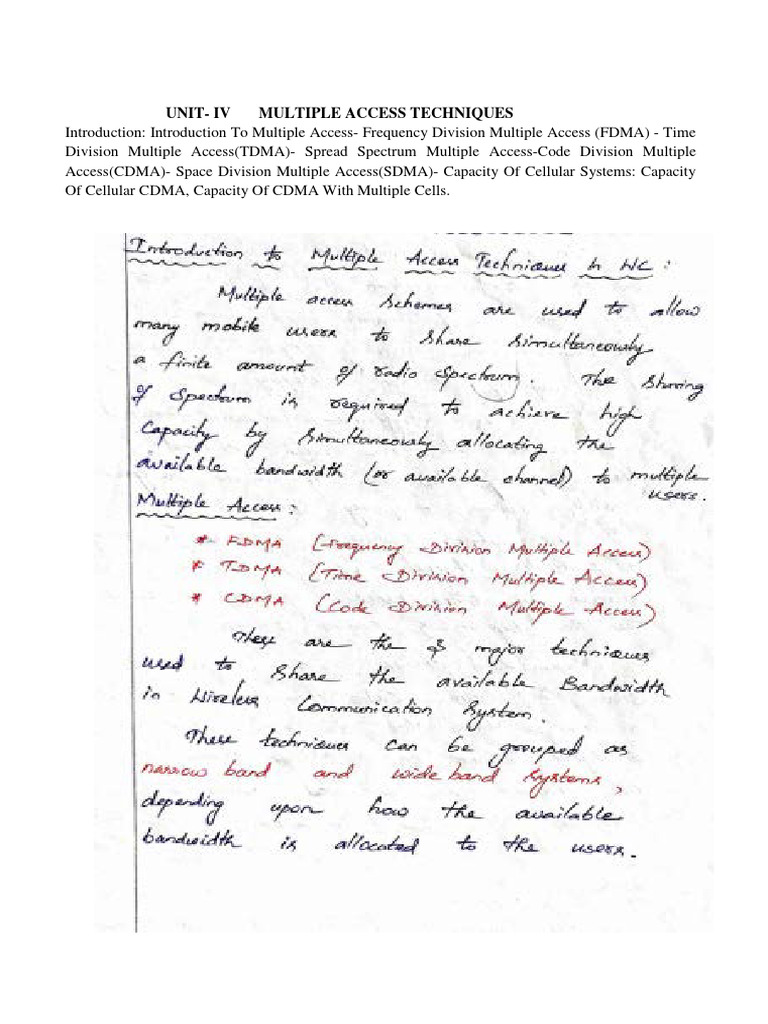 UNIT- IV MULTIPLE ACCESS TECHNIQUES
Introduction: Introduction To Multiple Access- Frequency Division Multiple Access (FDMA) - Time
Division Multiple Access(TDMA)- Spread Spectrum Multiple Access-Code Division Multiple
Access(CDMA)- Space Division Multiple Access(SDMA)- Capacity Of Cellular Systems: Capacity
Of Cellular CDMA, Capacity Of CDMA With Multiple Cells.
Introduction to Multiple Access Techniques in WC:
Multiple access schemes are used to allow
many mobile users to share simultaneously
a finite amount of radio spectrum. The sharing
of spectrum is required to achieve high
capacity by simultaneously allocating the
available bandwidth (or available channel) to multiple
users.
Multiple Access:
* FDMA (Frequency Division Multiple Access)
* TDMA (Time Division Multiple Access)
* CDMA (Code Division Multiple Access)
These are the 3 major techniques
used to share the available Bandwidth
in Wireless Communication System.
These techniques can be grouped as
narrow band and wide band systems,
depending upon how the available
bandwidth is allocated to the users.